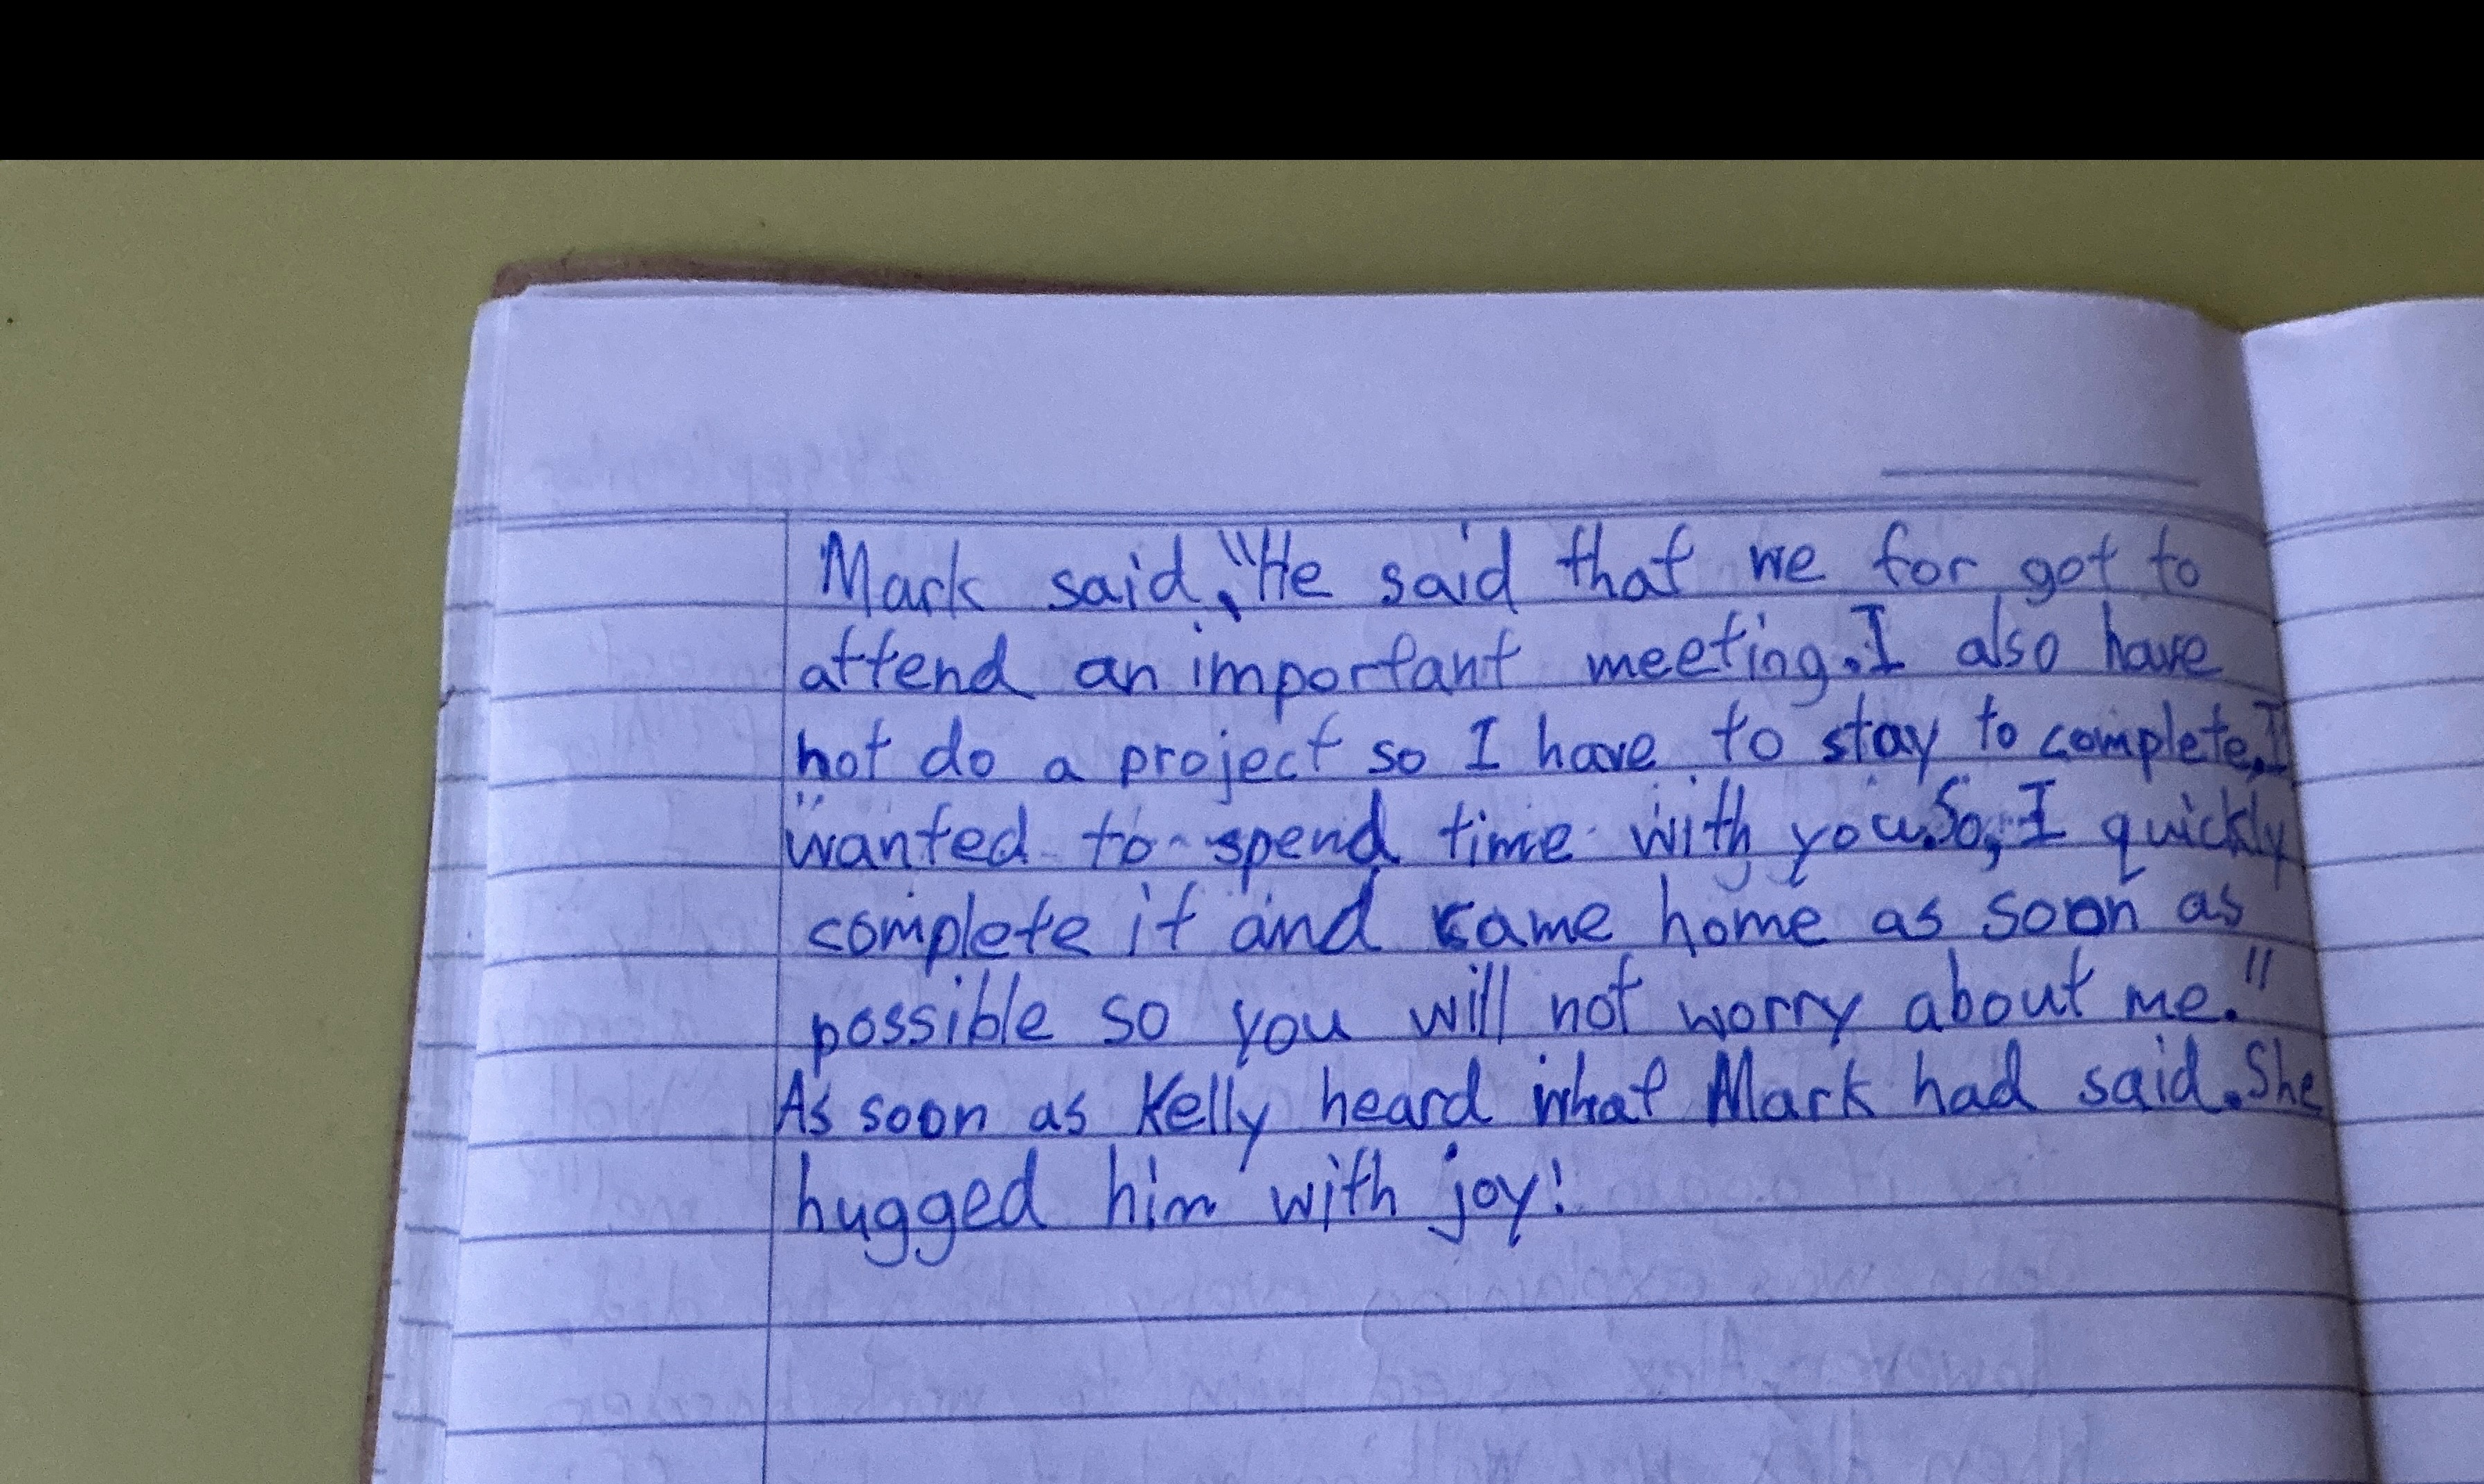 Mark said, "He said that we for got to
attend an important meeting. I also have
not do a project so I have to stay to complete. I
wanted to spend time with you. So, I quickly
complete it and came home as soon as
possible so you will not worry about me."
As soon as Kelly heard what Mark had said. She
hugged him with joy!